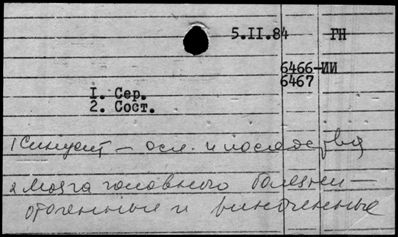 5.II.84 ГН
6466-ИИ
6467
1. Сер.
2. Сост.
1 Синусит – осл. и последствия
2 Мозга головного болезни –
отогенные и риногенные